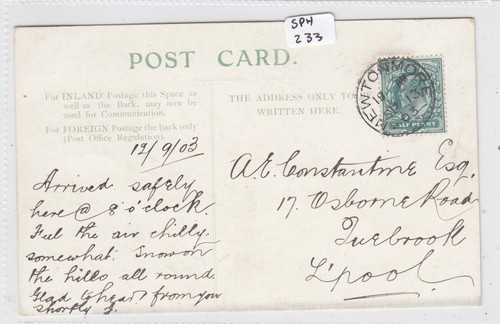 SPH
233
POST CARD.
For INLAND Postage this Space as
well as the Back, may now be
used for Communication.
For FOREIGN Postage the back only
(Post Office Regulation).
THE ADDRESS ONLY TO
WRITTEN HERE.
NEWTONMORE
12/9/03
Arrived safely
here @ 8 o'clock.
Feel the air chilly
somewhat. Snow on
the hills all round.
Glad to hear from you
shortly
A.E. Constantine Esq.
17. Osborne Road
Tuebrook
L'pool